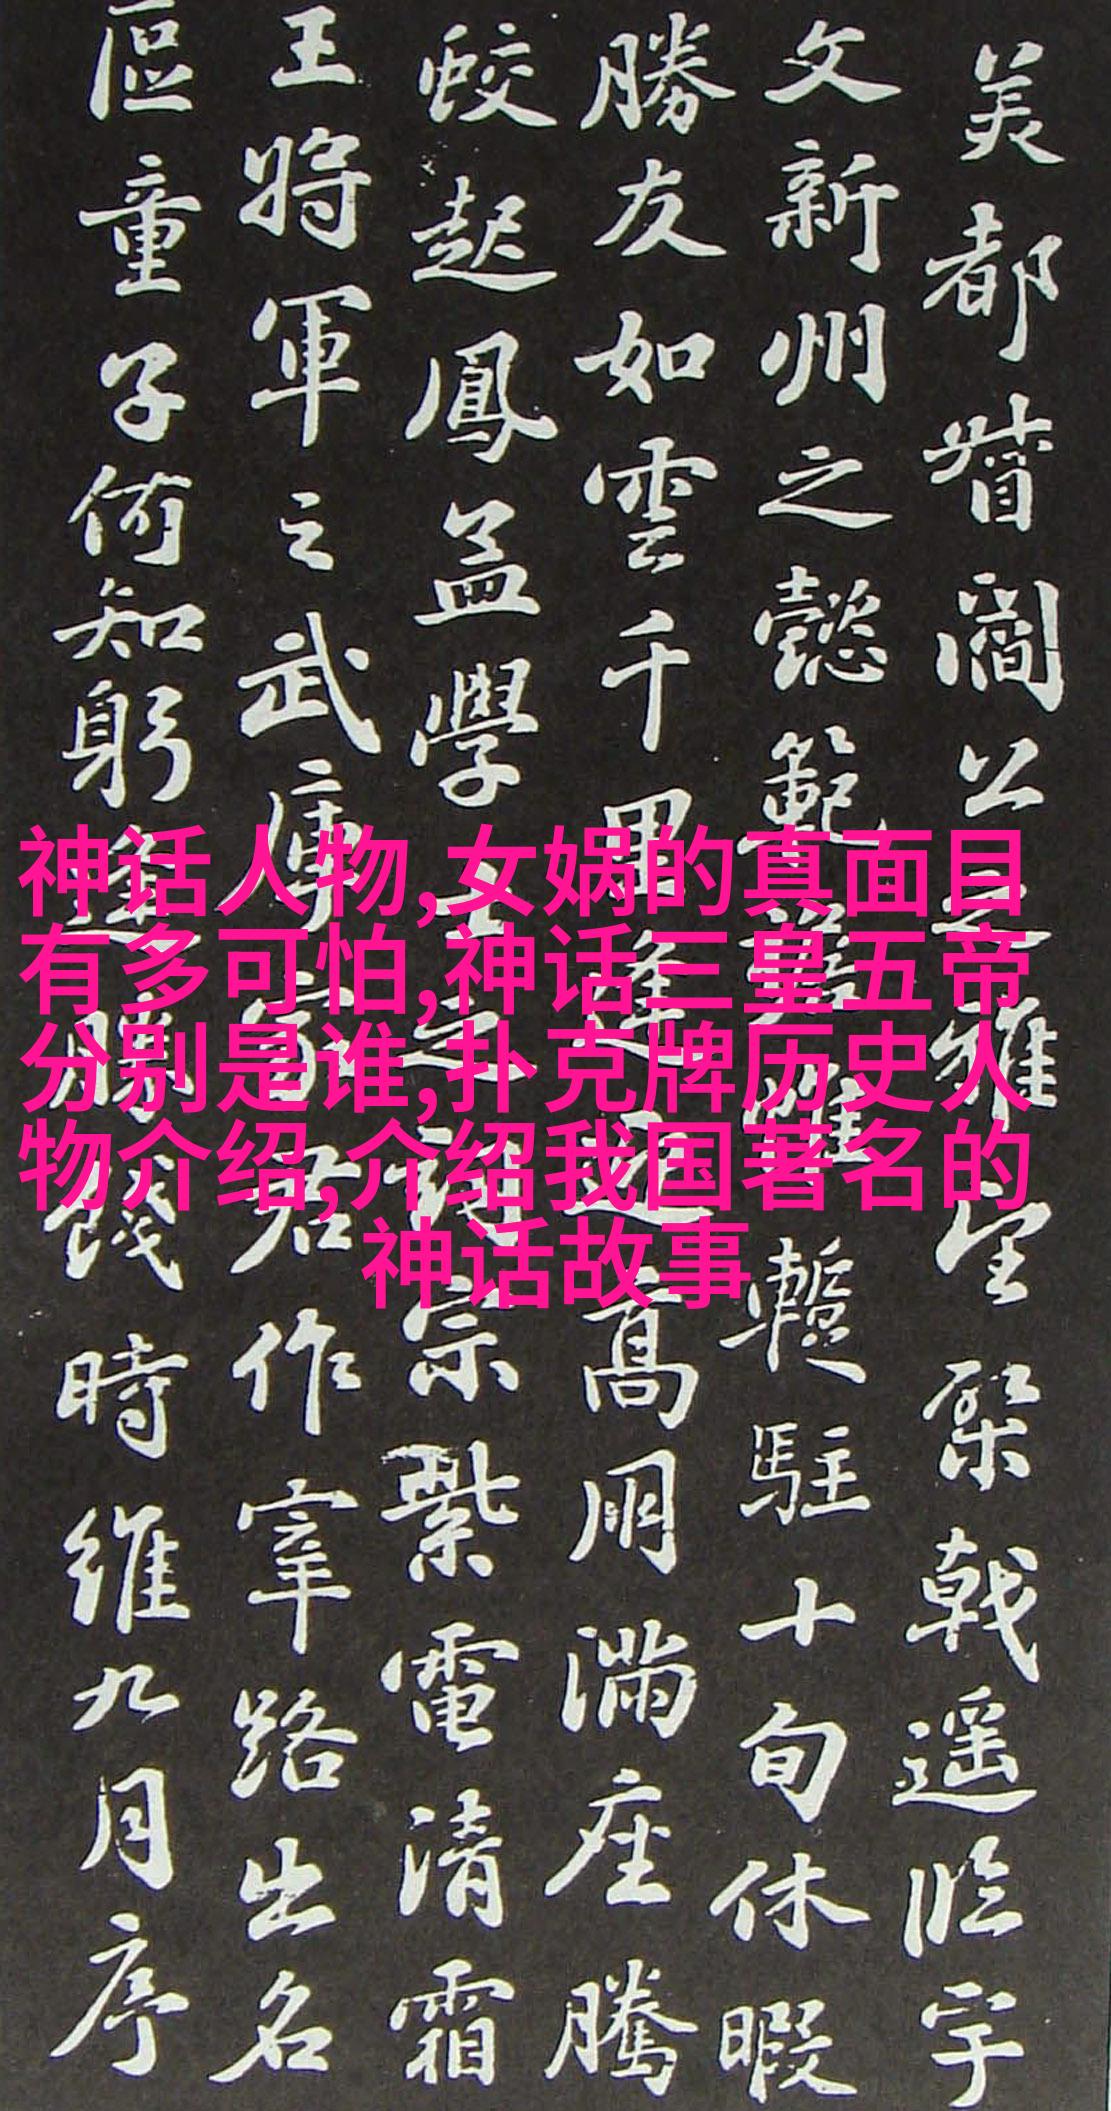 美都督閻公之雅望棨戟遥临宇
文新州之懿範襜帷暫駐十旬休暇
勝友如雲千里逢迎高朋满座騰
蛟起鳳孟學士之詞宗紫電清霜
王將軍之武庫家君作宰路出名
區童子何知躬逢勝餞時維九月序
神话人物,女娲的真面目
有多可怕,神话三皇五帝
分别是谁,扑克牌历史人
物介绍,介绍我国著名的
神话故事